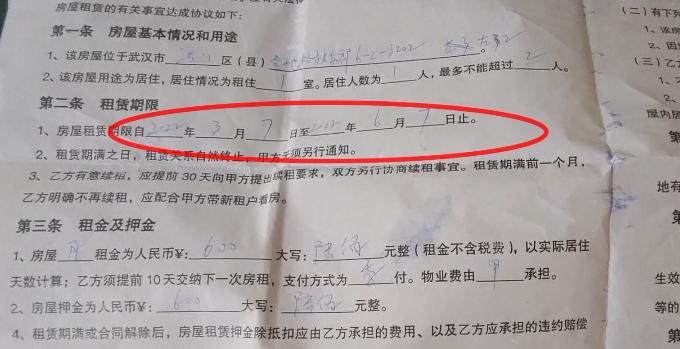 房屋租赁的有关事宜达成协议如下：
第一条 房屋基本情况和用途
1、该房屋位于武汉市 洪山 区（县） 6-2-3202
2、该房屋用途为居住，居住情况为租住 1 室。居住人数为 1 人，最多不能超过 2 人。
第二条 租赁期限
1、房屋租赁期限自 2022 年 3 月 7 日至 2022 年 6 月 7 日止。
2、租赁期满之日，租赁关系自然终止，甲方无须另行通知。
3、乙方有意续租，应提前30天向甲方提出续租要求，双方另行协商续租事宜。租赁期满前一个月，
乙方明确不再续租，应配合甲方带新租户看房。
第三条 租金及押金
1、房屋 月 租金为人民币¥： 600 大写： 陆佰 元整（租金不含税费），以实际居住
天数计算；乙方须提前10天交纳下一次房租，支付方式为 季 付。物业费由 甲 承担。
2、房屋押金为人民币¥： 600 大写： 陆佰 元整。
4、租赁期满或合同解除后，房屋租赁押金除抵扣应由乙方承担的费用、以及乙方应承担的违约赔偿
（二）有下列
1、
2、因
（三）乙
屋内居
地有
第
生效
等的
第